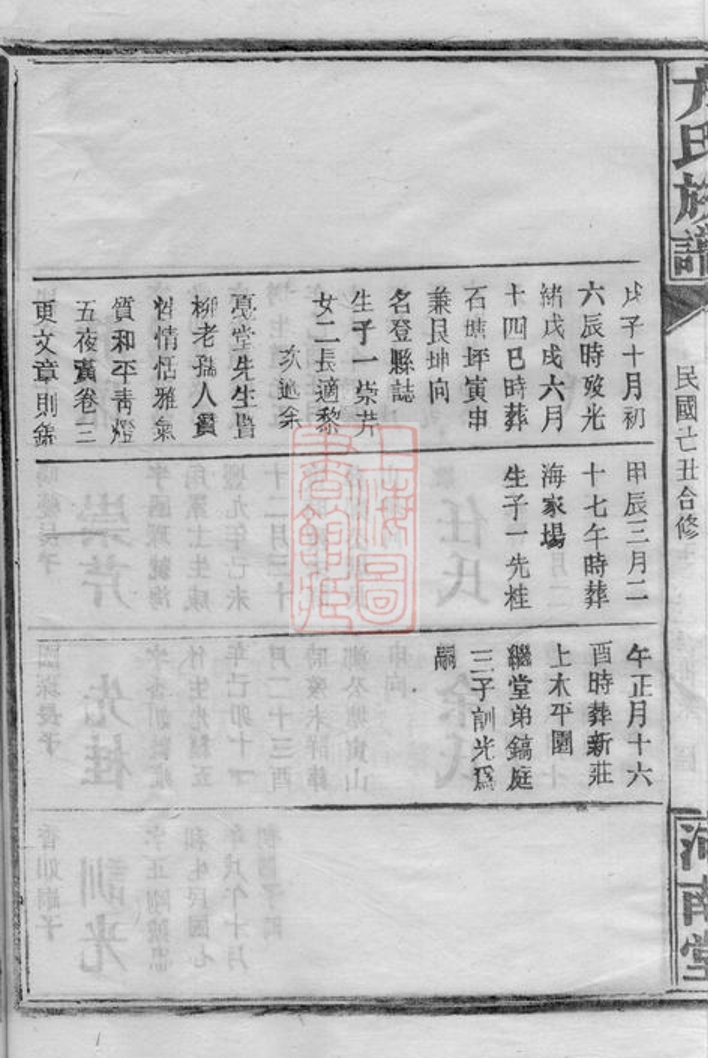 方氏族譜
民國己丑合修
河南堂
戊子十月初
六辰時歿光
緒戊戌六月
十四巳時葬
石塘坪寅申
兼艮坤向
名登縣誌
生子一崇芹
女二長適黎
次適余
憂堂先生曁
柳老孺人貭
性情恬雅氣
質和平靑燈
五夜黃卷三
更文章則錦
甲辰三月二
十七午時葬
海家場
生子一先桂
午正月十六
酉時葬新莊
上木平園
繼堂弟鎬庭
三子訓光爲
嗣